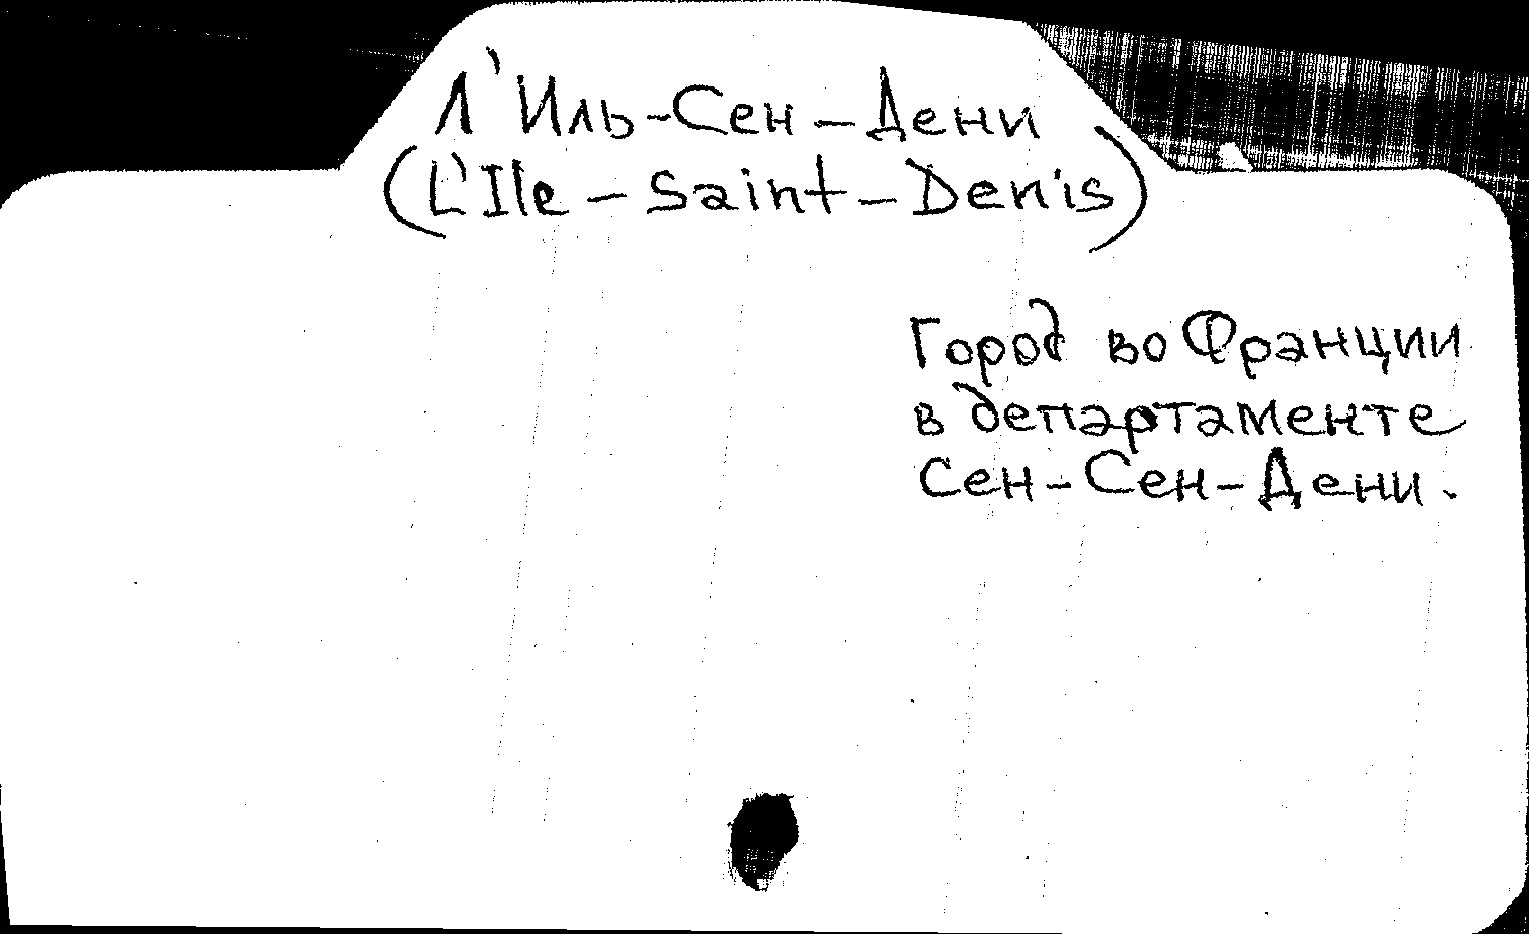 Л'Иль-Сен-Дени
(L'Ile-Saint-Denis)
Город во Франции
в департаменте
Сен-Сен-Дени.